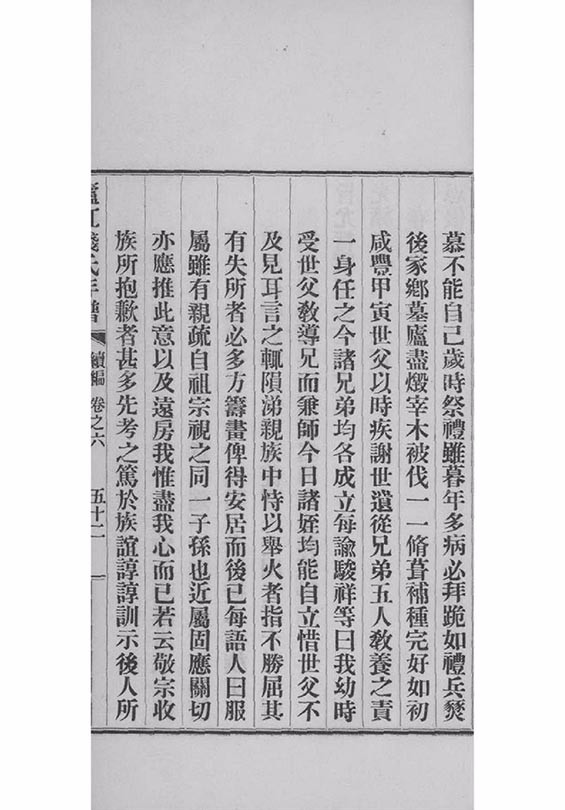 慕不能自已歲時祭禮雖暮年多病必拜跪如禮兵燹
後家鄉墓廬盡燬宰木被伐一一脩葺補種完好如初
咸豐甲寅世父以時疾謝世遺從兄弟五人教養之責
一身任之今諸兄弟均各成立每諭駿祥等曰我幼時
受世父教導兄而兼師今日諸姪均能自立惜世父不
及見耳言之輒隕涕親族中恃以舉火者指不勝屈其
有失所者必多方籌畫俾得安居而後已每語人曰服
屬雖有親疏自祖宗視之同一子孫也近屬固應關切
亦應推此意以及遠房我惟盡我心而已若云敬宗收
族所抱歉者甚多先考之篤於族誼諄諄訓示後人所
廬江錢氏年譜 續編 卷之六 五十二